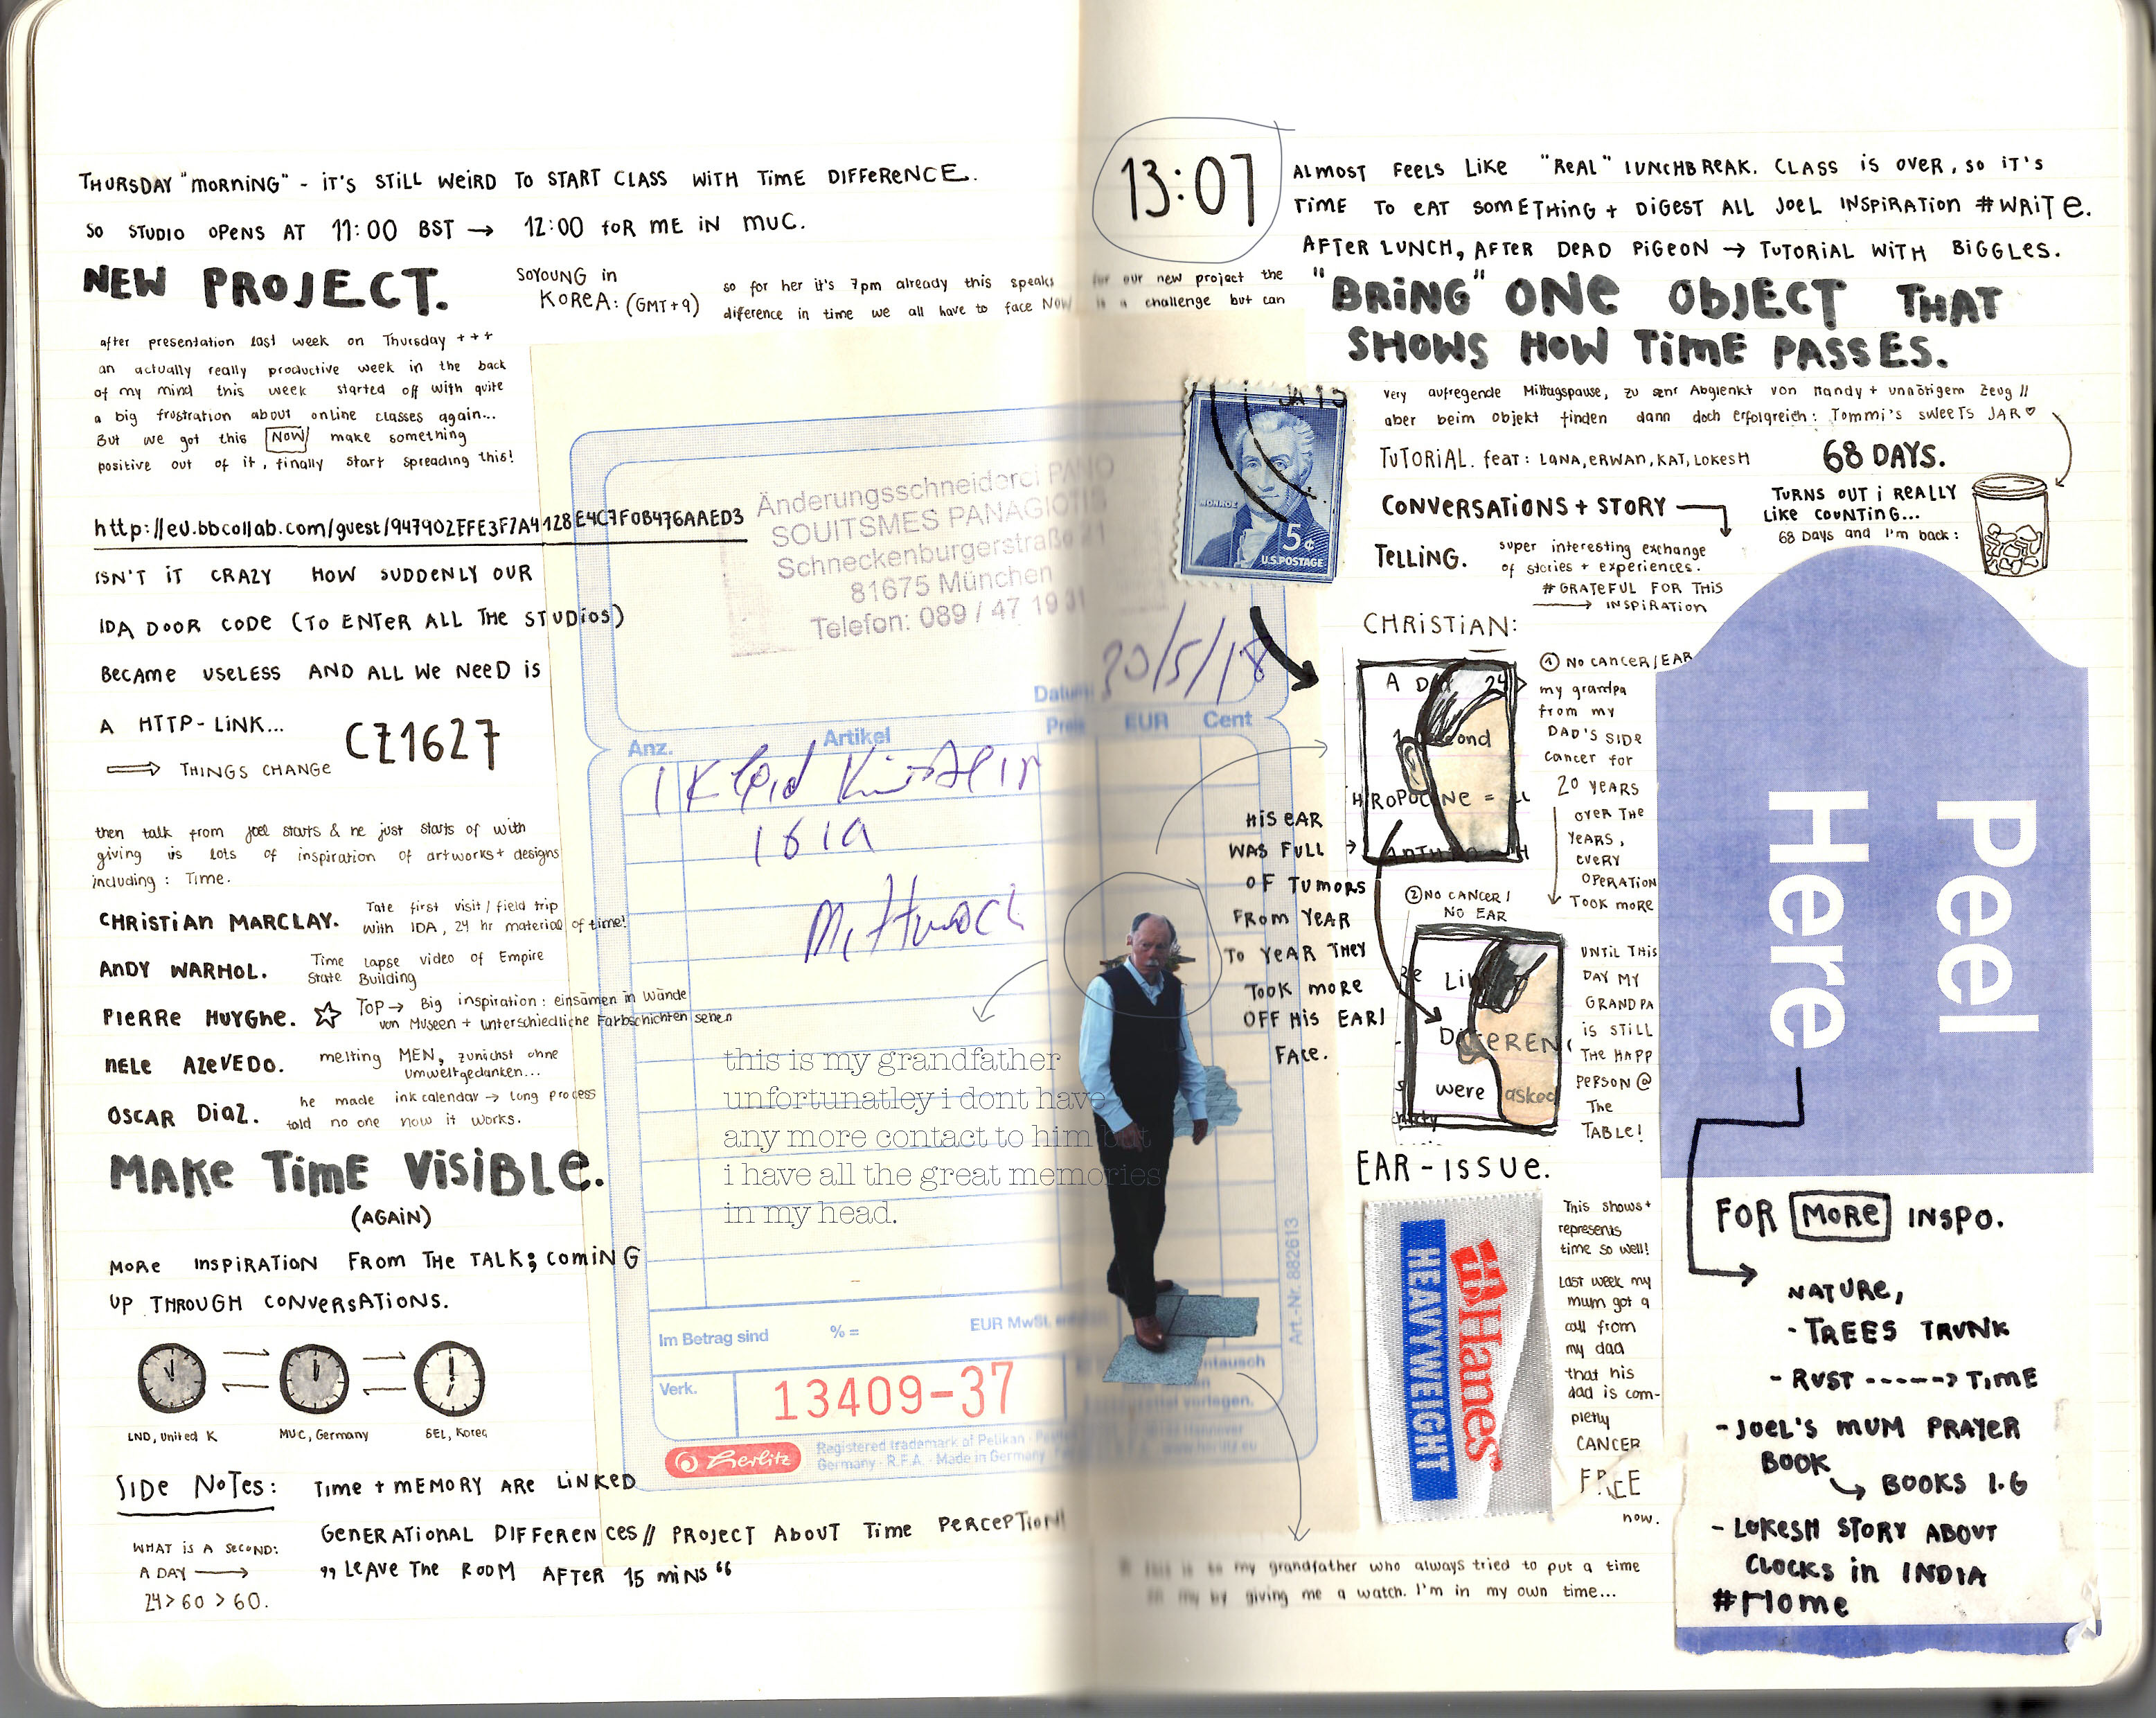 THURSDAY "MORNING" - IT'S STILL WEIRD TO START CLASS WITH TIME DIFFERENCE.
SO STUDIO OPENS AT 11:00 BST → 12:00 FOR ME IN MUC.
NEW PROJECT.
SOYOUNG in
KOREA: (GMT+9)
so for her it's 7pm already this speaks for our new project the
diference in time we all have to face NOW is a challenge but can
after presentation last week on Thursday +++
an actually really productive week in the back
of my mind this week started off with quite
a big frustration about online classes again...
But we got this NOW make something
positive out of it, finally start spreading this!
http://eu.bbcollab.com/guest/947902EFE3F7A4128E4C7F0B476AAED3
ISN'T IT CRAZY HOW SUDDENLY OUR
IDA DOOR CODE (TO ENTER ALL THE STUDIOS)
BECAME USELESS AND ALL WE NEED IS
A HTTP-LINK...
CZ1627
⇒ THINGS CHANGE
then talk from Joel starts & he just starts of with
giving us lots of inspiration of artworks + designs
including: Time.
CHRISTIAN MARCLAY. Tate first visit / field trip
with IDA, 24 hr material of time!
ANDY WARHOL. Time Lapse video of Empire
State Building
PIERRE HUYGHE. ☆ TOP → Big inspiration: einsämen in Wände
von Museen + unterschiedliche Farbschichten sehen
NELE AZEVEDO. melting MEN, zunächst ohne
Umweltgedanken...
OSCAR DIAZ. he made ink calendar → long process
told no one how it works.
MAKE TIME VISIBLE.
(AGAIN)
MORE INSPIRATION FROM THE TALK; COMING
UP THROUGH CONVERSATIONS.
LND, United K
MUC, Germany
SEL, Korea
SIDE NOTES:
TIME + MEMORY ARE LINKED
GENERATIONAL DIFFERENCES // PROJECT ABOUT TIME PERCEPTION!
„LEAVE THE ROOM AFTER 15 MINS“
WHAT IS A SECOND:
A DAY →
24 > 60 > 60.
Änderungsschneiderei PANO
SOUITSMES PANAGIOTIS
Schneckenburgerstraße 21
81675 München
Telefon: 089 / 47 19 31
Datum 30/5/18
Anz. Artikel Preis EUR Cent
1 Kleid
Mittwoch
this is my grandfather
unfortunatley i dont have
any more contact to him but
i have all the great memories
in my head.
Im Betrag sind % = EUR MwSt.
Verk.
13409-37
Herlitz
Registered trademark of Pelikan
Germany · R.F.A. · Made in Germany
Art.-Nr. 882613
13:07
ALMOST FEELS LIKE "REAL" LUNCHBREAK. CLASS IS OVER, SO IT'S
TIME TO EAT SOMETHING + DIGEST ALL JOEL INSPIRATION #WRITE.
AFTER LUNCH, AFTER DEAD PIGEON → TUTORIAL WITH BIGGLES.
"BRING" ONE OBJECT THAT
SHOWS HOW TIME PASSES.
very aufregende Mittagspause, zu sehr Abgelenkt von Handy + unnötigem Zeug //
aber beim Objekt finden dann doch erfolgreich: Tommi's sweets JAR ♡
TUTORIAL. feat: LANA, ERWAN, KAT, LOKESH
68 DAYS.
TURNS OUT I REALLY
LIKE COUNTING...
68 Days and I'm back:
CONVERSATIONS + STORY
TELLING.
super interesting exchange
of stories + experiences.
# GRATEFUL FOR THIS
→ INSPIRATION
MONROE
5¢
U.S. POSTAGE
CHRISTIAN:
① NO CANCER/EAR
my grandpa
from my
DAD'S SIDE
Cancer for
20 YEARS
OVER THE
YEARS,
EVERY
OPERATION
TOOK MORE
② NO CANCER /
NO EAR
UNTIL THIS
DAY MY
GRANDPA
is STILL
THE HAPP
PERSON @
The
TABLE!
HIS EAR
WAS FULL
OF TUMORS
FROM YEAR
TO YEAR THEY
TOOK MORE
OFF HIS EAR/
FACE.
were asked
EAR-ISSUE.
Hanes
HEAVYWEIGHT
This shows +
represents
time so well!
Last week my
mum got a
call from
my dad
that his
dad is com-
pletly
CANCER
FREE
now.
this is to my grandfather who always tried to put a time
by giving me a watch. I'm in my own time...
Peel
Here
FOR MORE INSPO.
NATURE,
- TREES TRUNK
- RUST -----> TIME
- JOEL'S MUM PRAYER
BOOK
↪ BOOKS I.G
- LOKESH STORY ABOUT
CLOCKS in INDIA
#Home